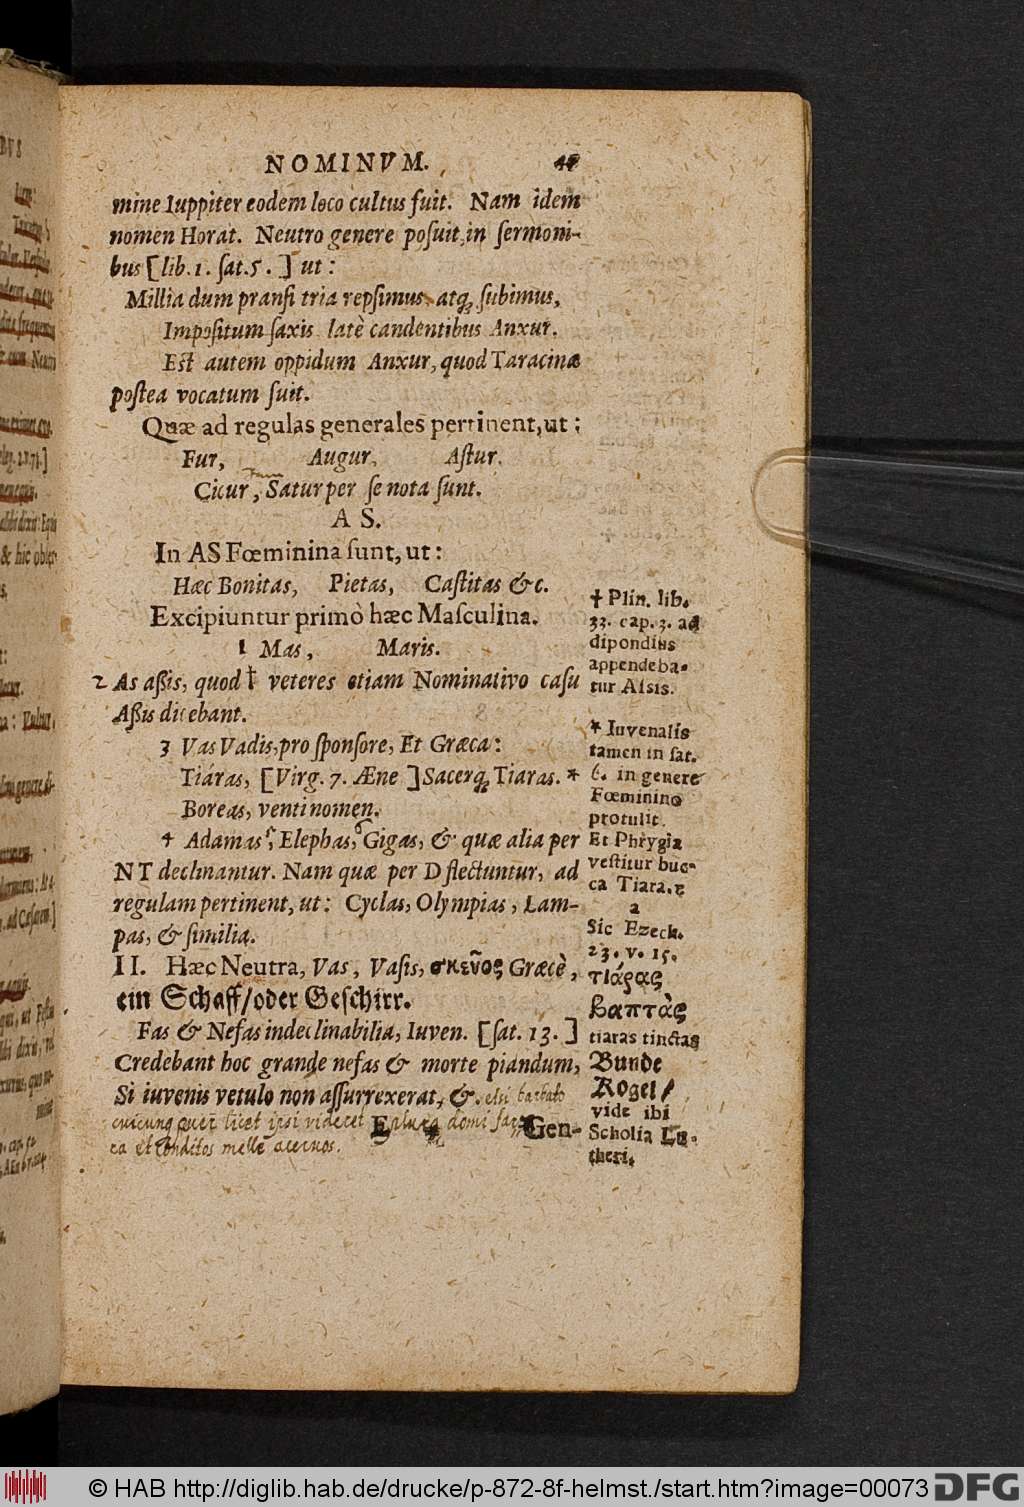 NOMINVM.
mine Iuppiter eodem loco cultus fuit. Nam idem
nomen Horat. Neutro genere posuit in sermoni-
bus [lib. 1. sat. 5. ] ut:
Millia dum pransi tria repsimus atq; subimus,
Impositum saxis latè candentibus Anxur.
Est autem oppidum Anxur, quod Taracinæ
postea vocatum fuit.
Quæ ad regulas generales pertinent, ut:
Fur, Augur, Astur.
Cicur, Satur per se nota sunt.
A S.
In AS Fœminina sunt, ut:
Hæc Bonitas, Pietas, Castitas &c.
Excipiuntur primò hæc Masculina.
1 Mas, Maris.
2 As aßis, quod † veteres etiam Nominativo casu
Aßis dicebant.
3 Vas Vadis, pro sponsore, Et Græca:
Tiáras, [Virg. 7. Æne ] Sacerq; Tiaras. *
Boreas, venti nomen.
4 Adamas, Elephas, Gigas, & quæ alia per
NT declinantur. Nam quæ per D flectuntur, ad
regulam pertinent, ut: Cyclas, Olympias, Lam-
pas, & similia.
II. Hæc Neutra, Vas, Vasis, σκεῦος Græcè,
ein Schaff/oder Geschirr.
Fas & Nefas indeclinabilia, Iuven. [sat. 13. ]
Credebant hoc grande nefas & morte piandum,
Si iuvenis vetulo non assurrexerat, &. etsi barbato
cuicunq; puer licet ipsi videret
domi
Gen-
et conditos melle acervos.
† Plin. lib.
33. cap. 3. ad
dipondius
appendeba-
tur Assis.
* Iuvenalis
tamen in sat.
6. in genere
Fœminino
protulit.
Et Phrygia
vestitur buc-
ca Tiara.
Sic Ezech.
23. v. 15.
τιάρας
βαπτὰς
tiaras tinctas
Bunde
Kogel/
vide ibi
Scholia Lu-
theri.
© HAB http://diglib.hab.de/drucke/p-872-8f-helmst./start.htm?image=00073
DFG